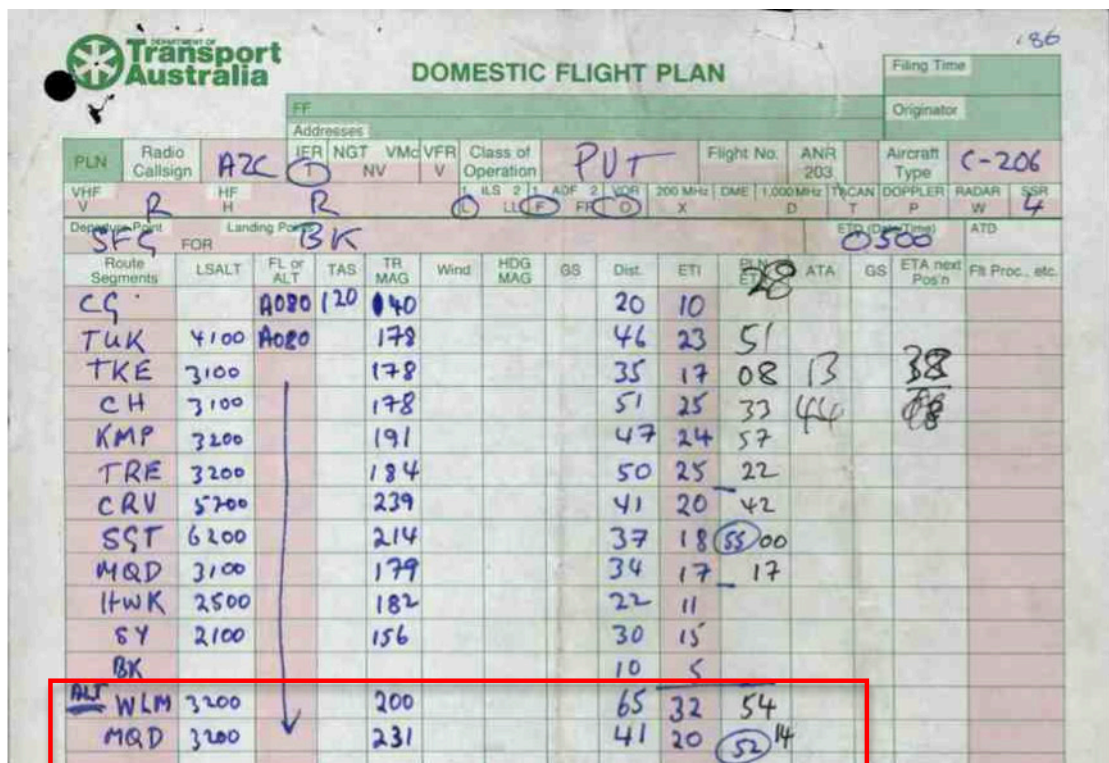 '86
DEPARTMENT OF
Transport
Australia
DOMESTIC FLIGHT PLAN
Filing Time
FF
Originator
Addresses
PLN Radio Callsign AZC IFR I NGT VMc NV VFR V Class of Operation PVT Flight No. ANR 203 Aircraft Type C-206
VHF V R HF H R 1 ILS 2 L LL 1 ADF 2 F FF VOR O 200 MHz X DME 1,000 MHz D TACAN T DOPPLER P RADAR W SSR 4
Departure Point SFG FOR Landing Points BK ETD (Date/Time) 0500 ATD
Route Segments LSALT FL or ALT TAS TR MAG Wind HDG MAG GS Dist. ETI PLN ETI 28 ATA GS ETA next Pos'n Flt Proc., etc.
CG A080 120 140 20 10
TUK 4100 A080 178 46 23 51
TKE 3100 178 35 17 08 13 38
CH 3100 178 51 25 33 44
KMP 3200 191 47 24 57
TRE 3200 184 50 25 22
CRV 5700 239 41 20 42
SGT 6200 214 37 18 55 00
MQD 3100 179 34 17 17
HWK 2500 182 22 11
SY 2100 156 30 15
BK 10 5
ALT WLM 3200 200 65 32 54
MQD 3200 231 41 20 52 14